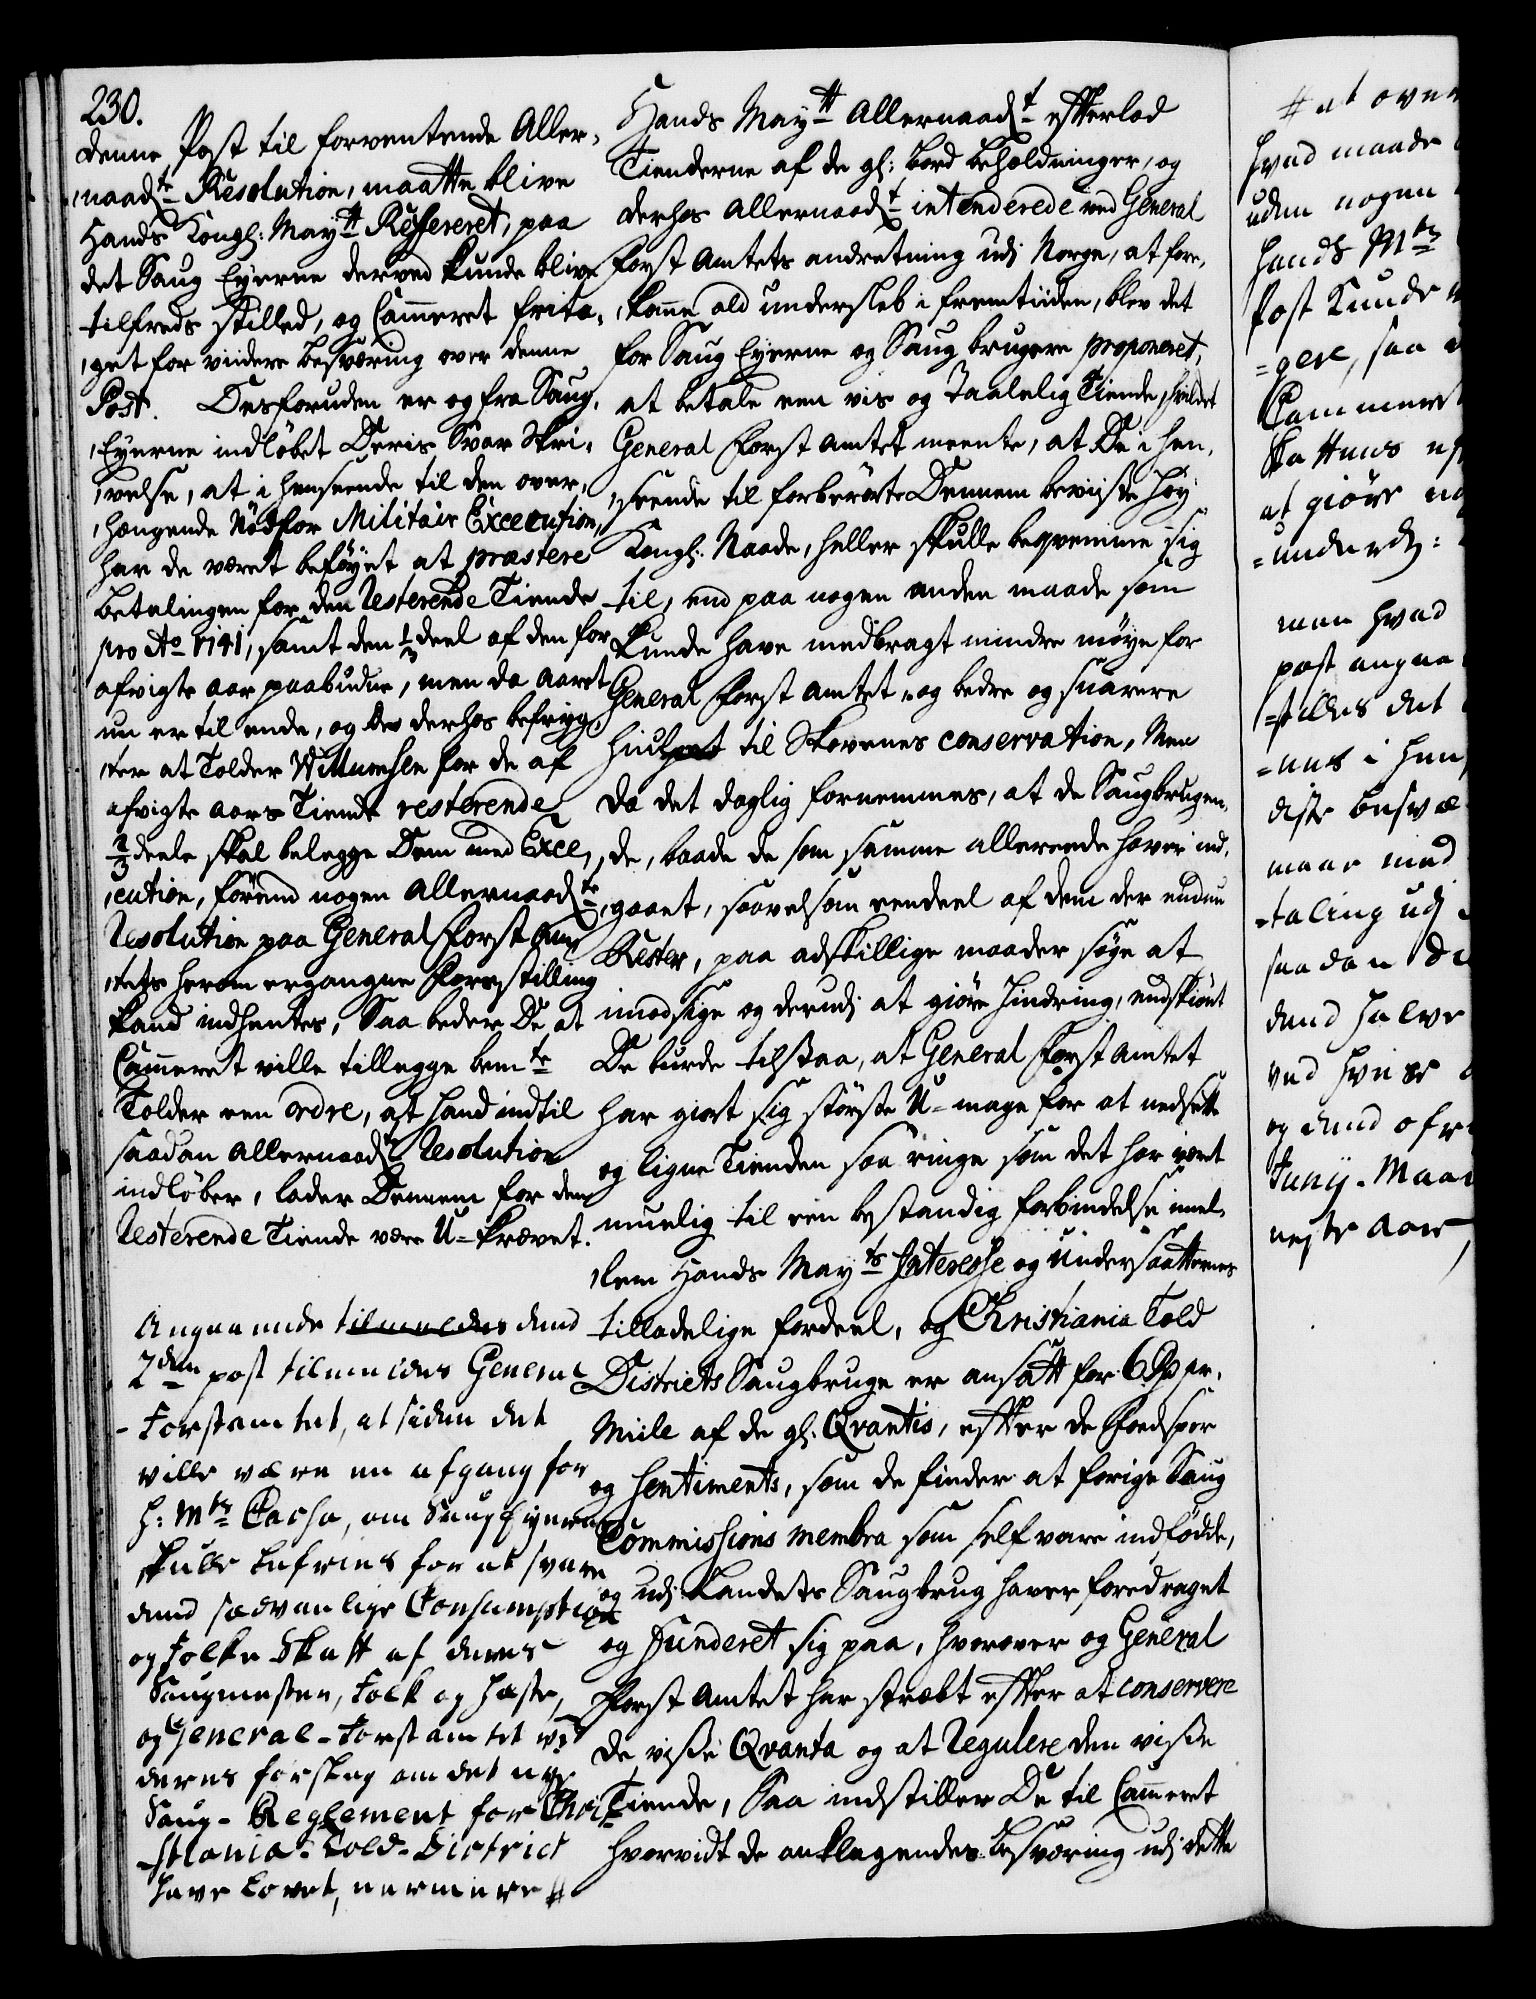 230.
denne Post til forventende Aller-
naad.te Resolution, maatte blive
Hands Kongl: May.tt Refereret, paa
det Saug Eyerne derved kunde blive
tilfreds stilled, og Cammeret frita-
get for viidere besværing over denne
Post. Desforuden er og fra Saug-
Eyerne indløbet Deris Svar Skri-
velse, at i henseende til den over-
hængende Nød for Militair Execution,
har de været beføyet at præstere
betalingen for den Resterende Tiende
pro Ao 1741, samt den 1/3 deel af den for
afvigte aar paabudne, men da aaret
nu er til ende, og De derhos befryg-
ter at Tolder Willumsen for de af
afvigte aars Tiende resterende
2/3 deele skal belegge Dem med Exe-
cution, førend nogen allernaad.te
Resolution paa General Forst Am-
tets herom ergangne Forestilling
kand indhentes, Saa beder De at
Cammeret ville tillegge bem.te
Tolder een ordre, at hand indtil
saadan allernaad.te Resolution
indløber, lader Dennem for den
Resterende Tiende være U-krævet.
Angaaende tilmeldes dend
2den post tilmeldes General
-Forstamtet, at siden det
ville være en afgang for
H: Mts Cassa, om Saug Eyerne
skulle befries for at svare
dend sædvanlige Consumption
og Folke Skatt af deres
Saugmestere, Folk og Heste,
og General-Forstamtet ved
deres forslag om det nye
Saug-Reglement for Chri-
stiania-Told-District
have lovet, nærmere #
Hands May.tt Allernaad.t efterlod
Tienderne af de gl: bord beholdninger, og
derhos allernaad.t intenderede ved General
Forst Amtets andretning udj Norge, at fore-
komme ald undersleb i fremtiiden, blev det
for Saug Eyerne og Saugbrugere proponeret,
at betale een vis og Taalelig Tiende, hvilket
General Forst Amtet meente, at De i hen-
seende til forberørte Dennem beviiste høy
Kongl: Naade, heller skulle beqvemme sig
til, end paa nogen anden maade som
kunde have medbragt mindre møye for
General Forst Amtet og bedre og snarere
til Skovenes conservation, Men
da det daglig fornemmes, at de Saugbrugen-
de, baade de som samme allereede haver ind-
gaaet, saavelsom eendeel af dem der endnu
Rester, paa adskillige maader søge at
imodsige og derudj at giøre hindring, endskiønt
De burde tilstaa, at General Forst Amtet
har giort sig største U-mage for at nedsette
og ligne Tienden saa ringe som det har været
muelig til een bestandig forbindelse imel-
lem Hands May.ts Interesse og undersaatternes
tilladelige fordeel, og Christiania Told
Districts Saugbruge er ansatt for 6 pr.
Mille af de gl: Qvantis, efter de Foedspor
og Sentiments, som de finder at forige Saug
Commissions membra som self vare indfødde,
og udj Landets Saugbrug haver foredraget
og funderet sig paa, hvorover og General
Forst Amtet har stræbt efter at conservere
de visse Qvanta og at Regulere den visse
Tiende, Saa indstiller De til Cammeret
hvorvidt de anklagendes besværing udj dette
# at oven
hvad maade
uden nogen
hands Mts
post kunde
=gere, saa
Cammeret
at giøre
=underd:
men hvad
post angaa
=stilles det
=ans i hen
diste besvæ
maae med
=taling udj
saadan
dend halve
ved hver
og dend
Junij-Maan
neste Aar,